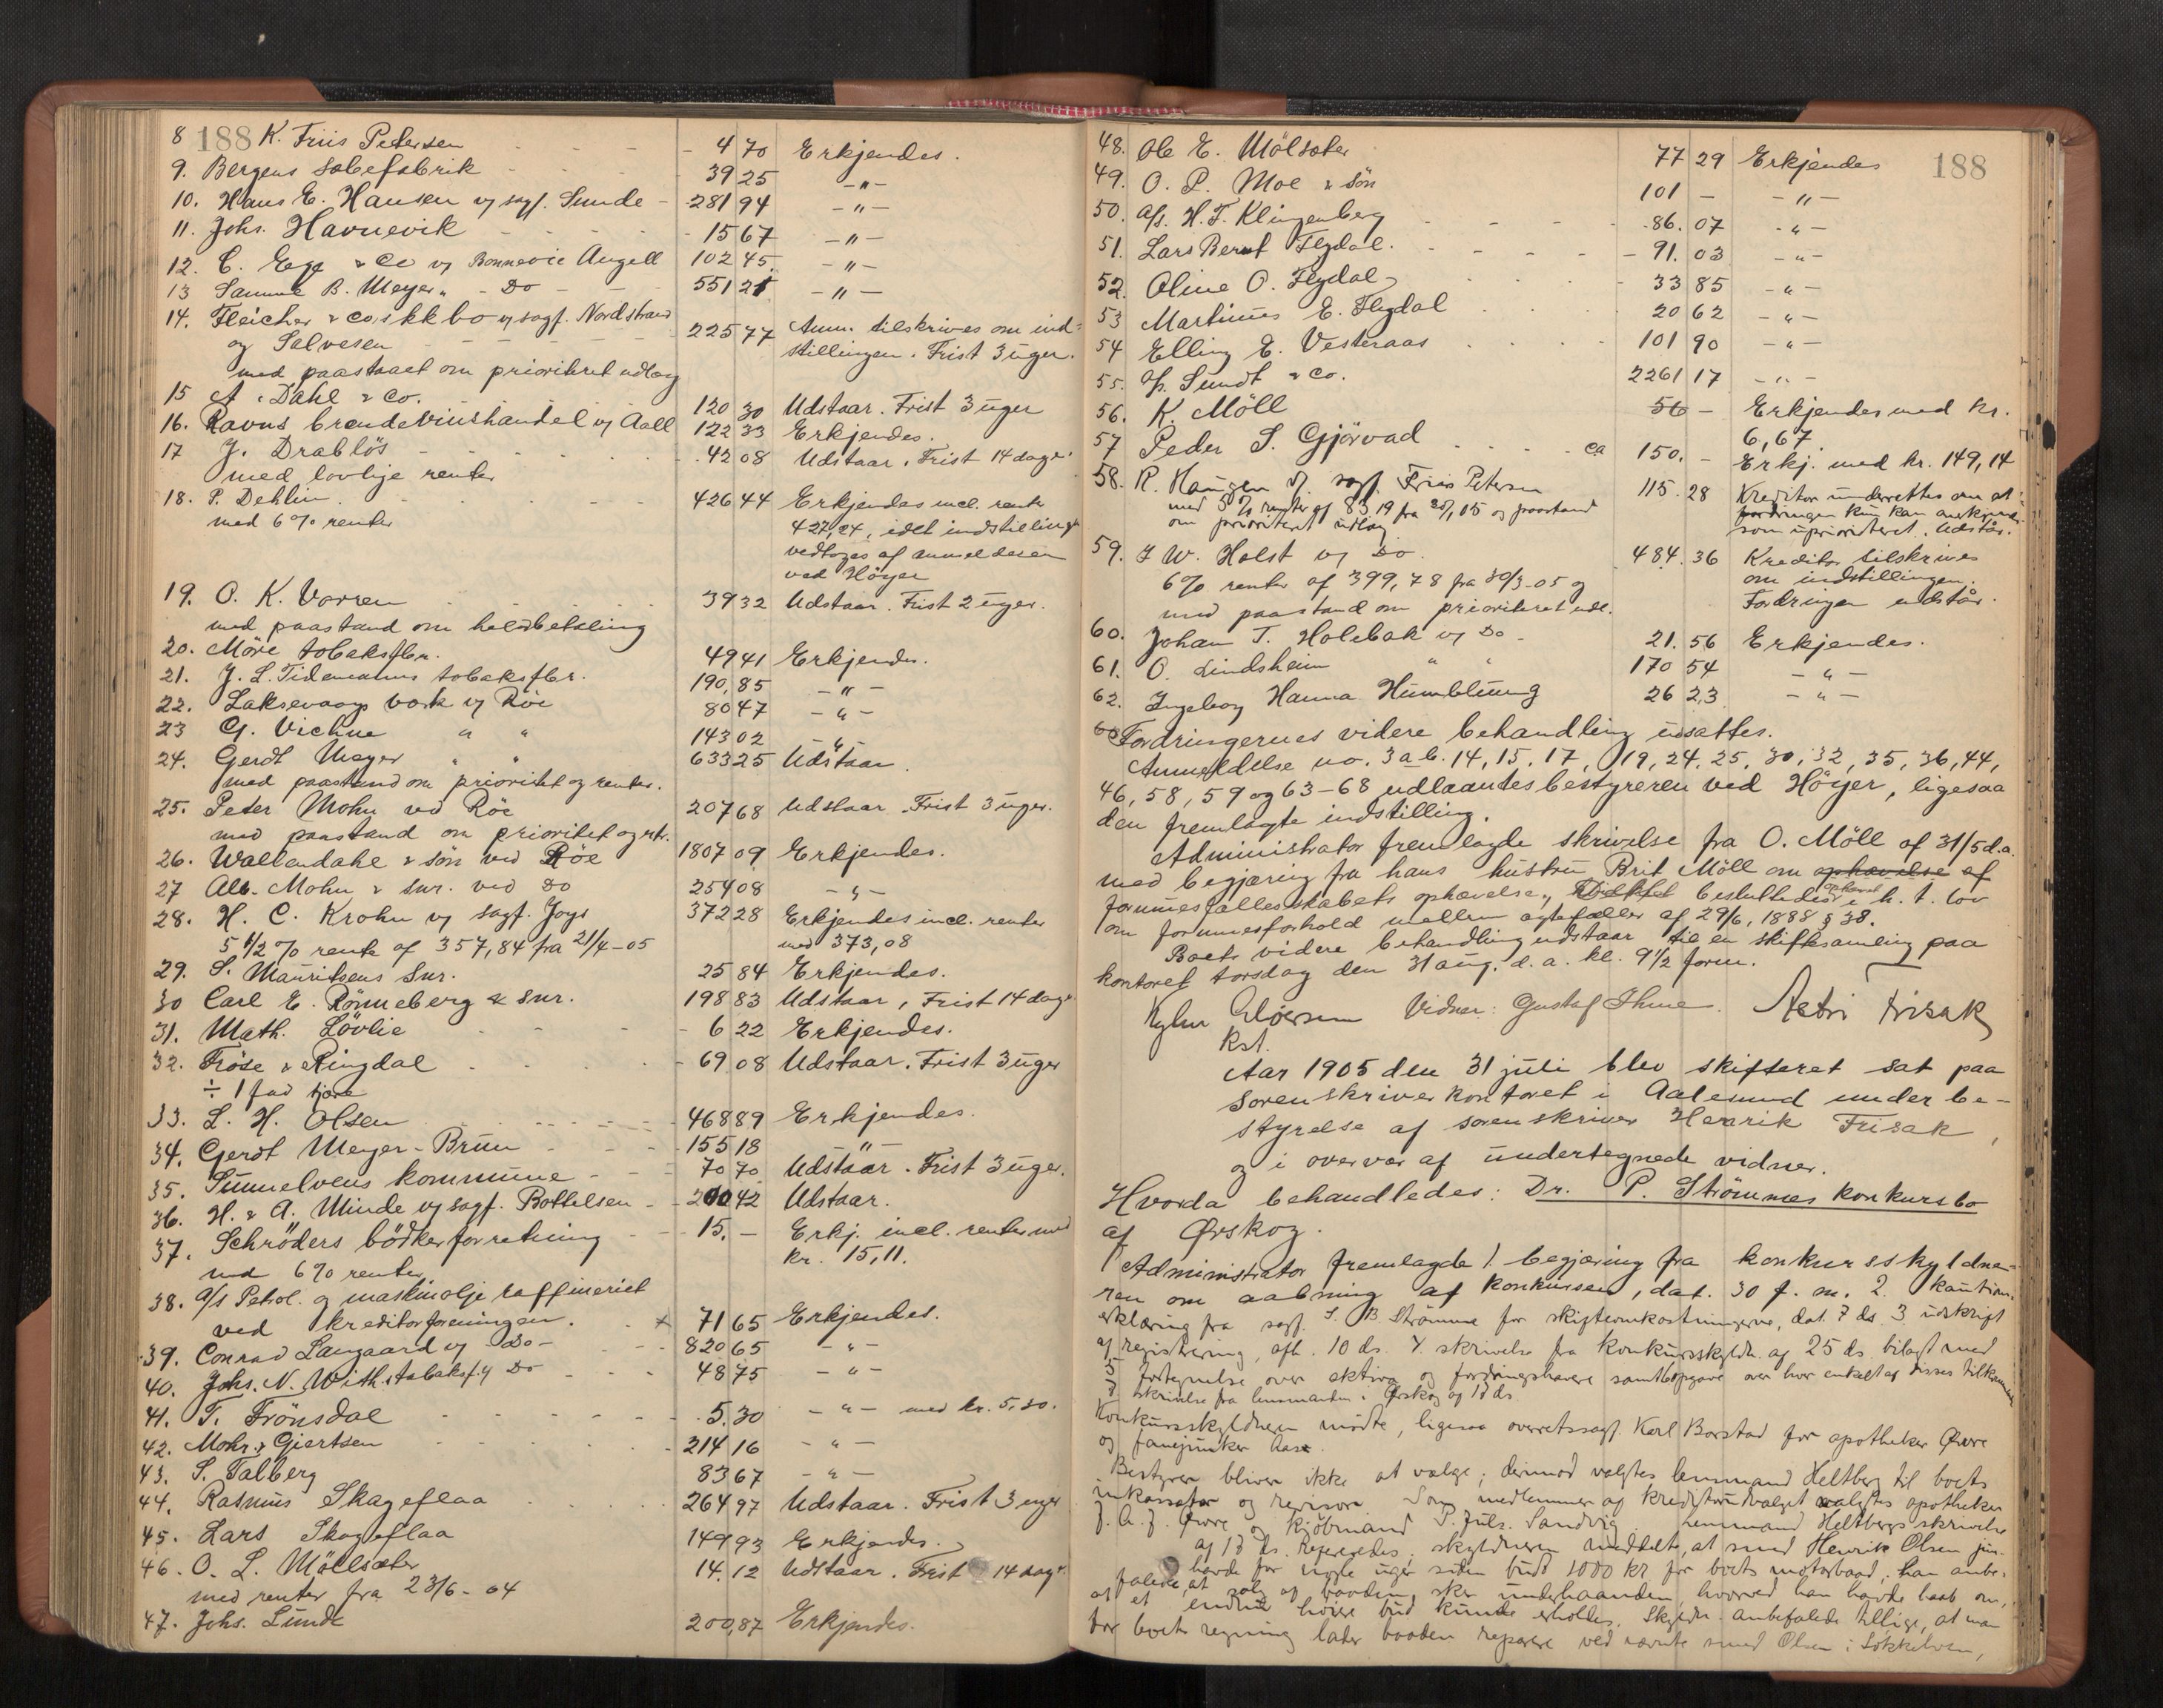 188
8 K. Friis Pedersen - - - 4 70 Erkjendes.
9. Bergens sæbefabrik - - - 39 25 -"-
10. Hans E. Hansen v/ sagf. Sunde - 281 94 -"-
11. Johs. Havnevik - - - 15 67 -"-
12. C. Ege & Co v/ Bonnevie Angell 102 45 -"-
13 Samuel B. Meyer " - Do - - 551 21 -"-
14. Fleicher & co.s kkbo v/ sagf. Nordstrand
og Salvesen - - - 225 77 Anm. tilskrives om ind=
med paastaaet om prioriteret udlæg stillingen. Frist 3 uger.
15 A. Dahl & Co. 120 30 Udstaar. Frist 3 uger
16. Ravns brændevinshandel v/ Aall 122 33 Erkjendes.
17 J. Drabløs - - - 42 08 Udstaar. Frist 14 dage.
med lovlige renter
18. P. Dehlin - - - 426 44 Erkjendes incl. renter
med 6% renter 427,24, idet indstilling
vedtages af anmelderen
ved Höyer
19. O. K. Vorren 39 32 Udstaar. Frist 2 uger.
med paastand om helsbetaling
20. Möre tobaksfbr. 49 41 Erkjendes.
21. J. L. Tidemanns tobaksfbr. 190,85 -"-
22. Laksevaags værk v/ Röe 80 47 -"-
23 G. Vichne " " 143 02 -"-
24. Gerdt Meyer " " 633 25 Udstaar.
med paastand om prioritet og renter.
25. Peter Mohn ved Röe 207 68 Udstaar. Frist 3 uger.
med paastand om prioritet og rtr.
26. Wallendahl & sön ved Röe 1807 09 Erkjendes.
27 Alb. Mohn & snr. ved Do 254 08 -"-
28. H. C. Krohn v/ sagf. Joys 372 28 Erkjendes incl. renter
5 1/2 % rente af 357,84 fra 21/4-05 med 373,08
29. S. Mauritsens Snr. 25 84 Erkjendes.
30 Carl E. Rönneberg & snr. 198 83 Udstaar, Frist 14 dage
31. Math. Lövlie - - - 6 22 Erkjendes.
32. Fröse & Ringdal - - - 69 08 Udstaar. Frist 3 uger
÷ 1 fad tjære
33. L. H. Olsen - - - 468 89 Erkjendes.
34. Gerdt Meyer-Bruun - - - 155 18 -"-
35. Sunnelvens kommune - - 70 70 Udstaar. Frist 3 uger.
36. H. & A. Minde v/ sagf. Bottelsen - - 200 42 Udstaar.
37. Schröders bödkerforretning - - 15. - Erkj. incl. renter med
med 6% renter kr. 15,11.
38. A/s Petrol. og maskinolje raffineriet
ved kreditorforeningen. x 71 65 Erkjendes.
39. Conrad Langaard v/ -Do- 820 65 -"-
40. Johs. N. With. tobaksf. v/ Do - 48 75 -"-
41. T. Frönsdal - - - 5.30 -"- med kr. 5,30.
42. Mohr & Giertsen - - - 214 16 -"-
43. S. Talberg 83 67 -"-
44. Rasmus Skageflaa - - - 264 97 Udstaar. Frist 3 uger
45. Lars Skageflaa 149 93 Erkjendes.
46. O. L. Möllsæter 14.12 Udstaar. Frist 14 dage.
med renter fra 23/6-04
47. Johs. Lunde 200,87 Erkjendes.
188
48. Ole E. Mölsæter 77 29 Erkjendes
49. O. P. Moe & sön 101 - -"-
50. A/s. H. F. Klingenberg - - - 86. 07 -"-
51. Lars Bernt Flydal. - - - 91. 03 -"-
52. Oline O. Flydal 33 85 -"-
53 Martinus E. Flydal 20 62 -"-
54 Elling E. Vesteraas 101 90 -"-
55. A/s. Sundt & Co. 2261 17 -"-
56. K. Möll 56 - Erkjendes med kr.
6,67
57 Peder S. Gjörvad - - - ca 150. - Erkj. med kr. 149,14
58. R. Haugen v/ sagf. Friis Petersen 115. 28 Kreditor underrettes om at
med 5% renter af 83 19 fra 05 og paastand fordringen kun kan anerkjendes
om prioriteret udlæg som uprioriteret. Udstår.
59. J W. Holst v/ Do. 484. 36 Kreditor tilskrives
6% renter af 399,78 fra 30/3-05 og om indstillingen.
med paastand om prioriteret udl. Fordringen udstår.
60. Johan T. Holebak v/ Do - 21. 56 Erkjendes.
61. O. Lindsheim " " 170 54 -"-
62. Ingeborg Hanna Humblung 26 23 -"-
Fordringernes videre behandling udsattes.
Anmeldelse no. 3 a b. 14, 15, 17, 19, 24, 25, 30, 32, 35, 36, 44,
46, 58, 59 og 63-68 udlaantes bestyreren ved Höyer, ligesaa
den fremlagte indstilling.
Administrator fremlagde skrivelse fra O. Möll af 31/5 d.a.
med begjæring fra hans hustru Brit Möll om ophævelse af
formuesfællesskabets ophævelse, besluttedes ophævet i h. t. lov
om formuesforhold mellem ægtefæller af 29/6, 1888 § 38.
Boets videre behandling udstaar til en skiftesamling paa
kontoret torsdag den 31 aug. d. a. kl. 9 1/2 form.
Vidner: Gustaf Ihme. Astri Frisak
Kst.
Aar 1905 den 31 juli blev skifteret sat paa
sorenskriverkontoret i Aalesund under be-
styrelse af sorenskriver Henrik Frisak,
og i overvær af undertegnede vidner.
Hvorda behandledes: Dr. P. Strömmes konkursbo
af Ørskog.
Administrator fremlagde 1. begjæring fra konkursskyldne-
ren om aabning af konkursen, dat. 30 f. m. 2. kautions
erklæring fra sagf. S. B. Strömme for skifteomkostningerne, dat. 7 ds. 3 udskrift
af registrering, afh. 10 ds. 4. skrivelse fra konkursskyldn. af 25 ds. bilagt med
5 fortegnelse over aktiva og fordringshavere samt opgave over hver enkelt af disses tilkommende
7 skrivelse fra lensmanden i Ørskog af 18 ds.
Konkursskyldneren mödte, ligesaa overretssagf. Karl Borstad for apotheker Øwre
og fanejunker Aase.
Bestyrer bliver ikke at vælge; derimod valgtes lensmand Heltberg til boets
inkassator og revisor. Som medlemmer af kreditorudvalget valgtes apotheker
J. A. J. Øwre og kjöbmand P. Juls. Sandvig. Lensmand Heltbergs skrivelse
af 18 ds. refereredes; skyldneren meddelte, at smed Henrik Olsen jun.
havde for nogle uger siden budt 1000 kr for boets motorbaad; han anbe-
falede, at salg af baaden sker underhaanden, hvorved han havde haab om,
at et endnu höiere bud kunde erholdes. Skyldn. anbefalede tillige, at man
for boets regning lader baaden reparere ved nævnte smed Olsen i Sökkelven,